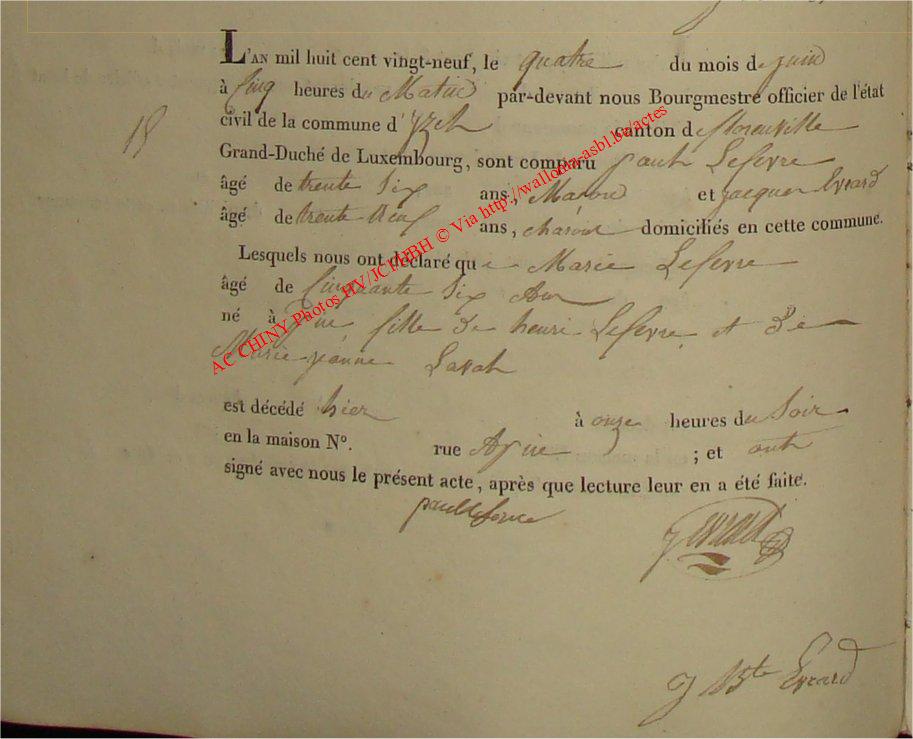 18
L'AN mil huit cent vingt-neuf, le quatre du mois de juin
à Cinq heures du Matin par-devant nous Bourgmestre officier de l'état
civil de la commune d'Yzel canton de florenville
Grand-Duché de Luxembourg, sont comparu paul Lefevre
âgé de trente Six ans, Maçon et jacques Evrard
âgé de trente neuf ans, charon domiciliés en cette commune.
Lesquels nous ont déclaré que Marie Lefevre
âgé de Cinquante Six Ans
né à Pin fille de henri Lefevre et de
Marie-jeanne Laval
est décédé hier à onze heures du Soir
en la maison N°. rue Apine ; et ont
signé avec nous le présent acte, après que lecture leur en a été faite.
paul lefevre
J evrard
J Bte Evrard
AC CHINY Photos HV/JCM/BH © Via http://wallonia-asbl.be/actes